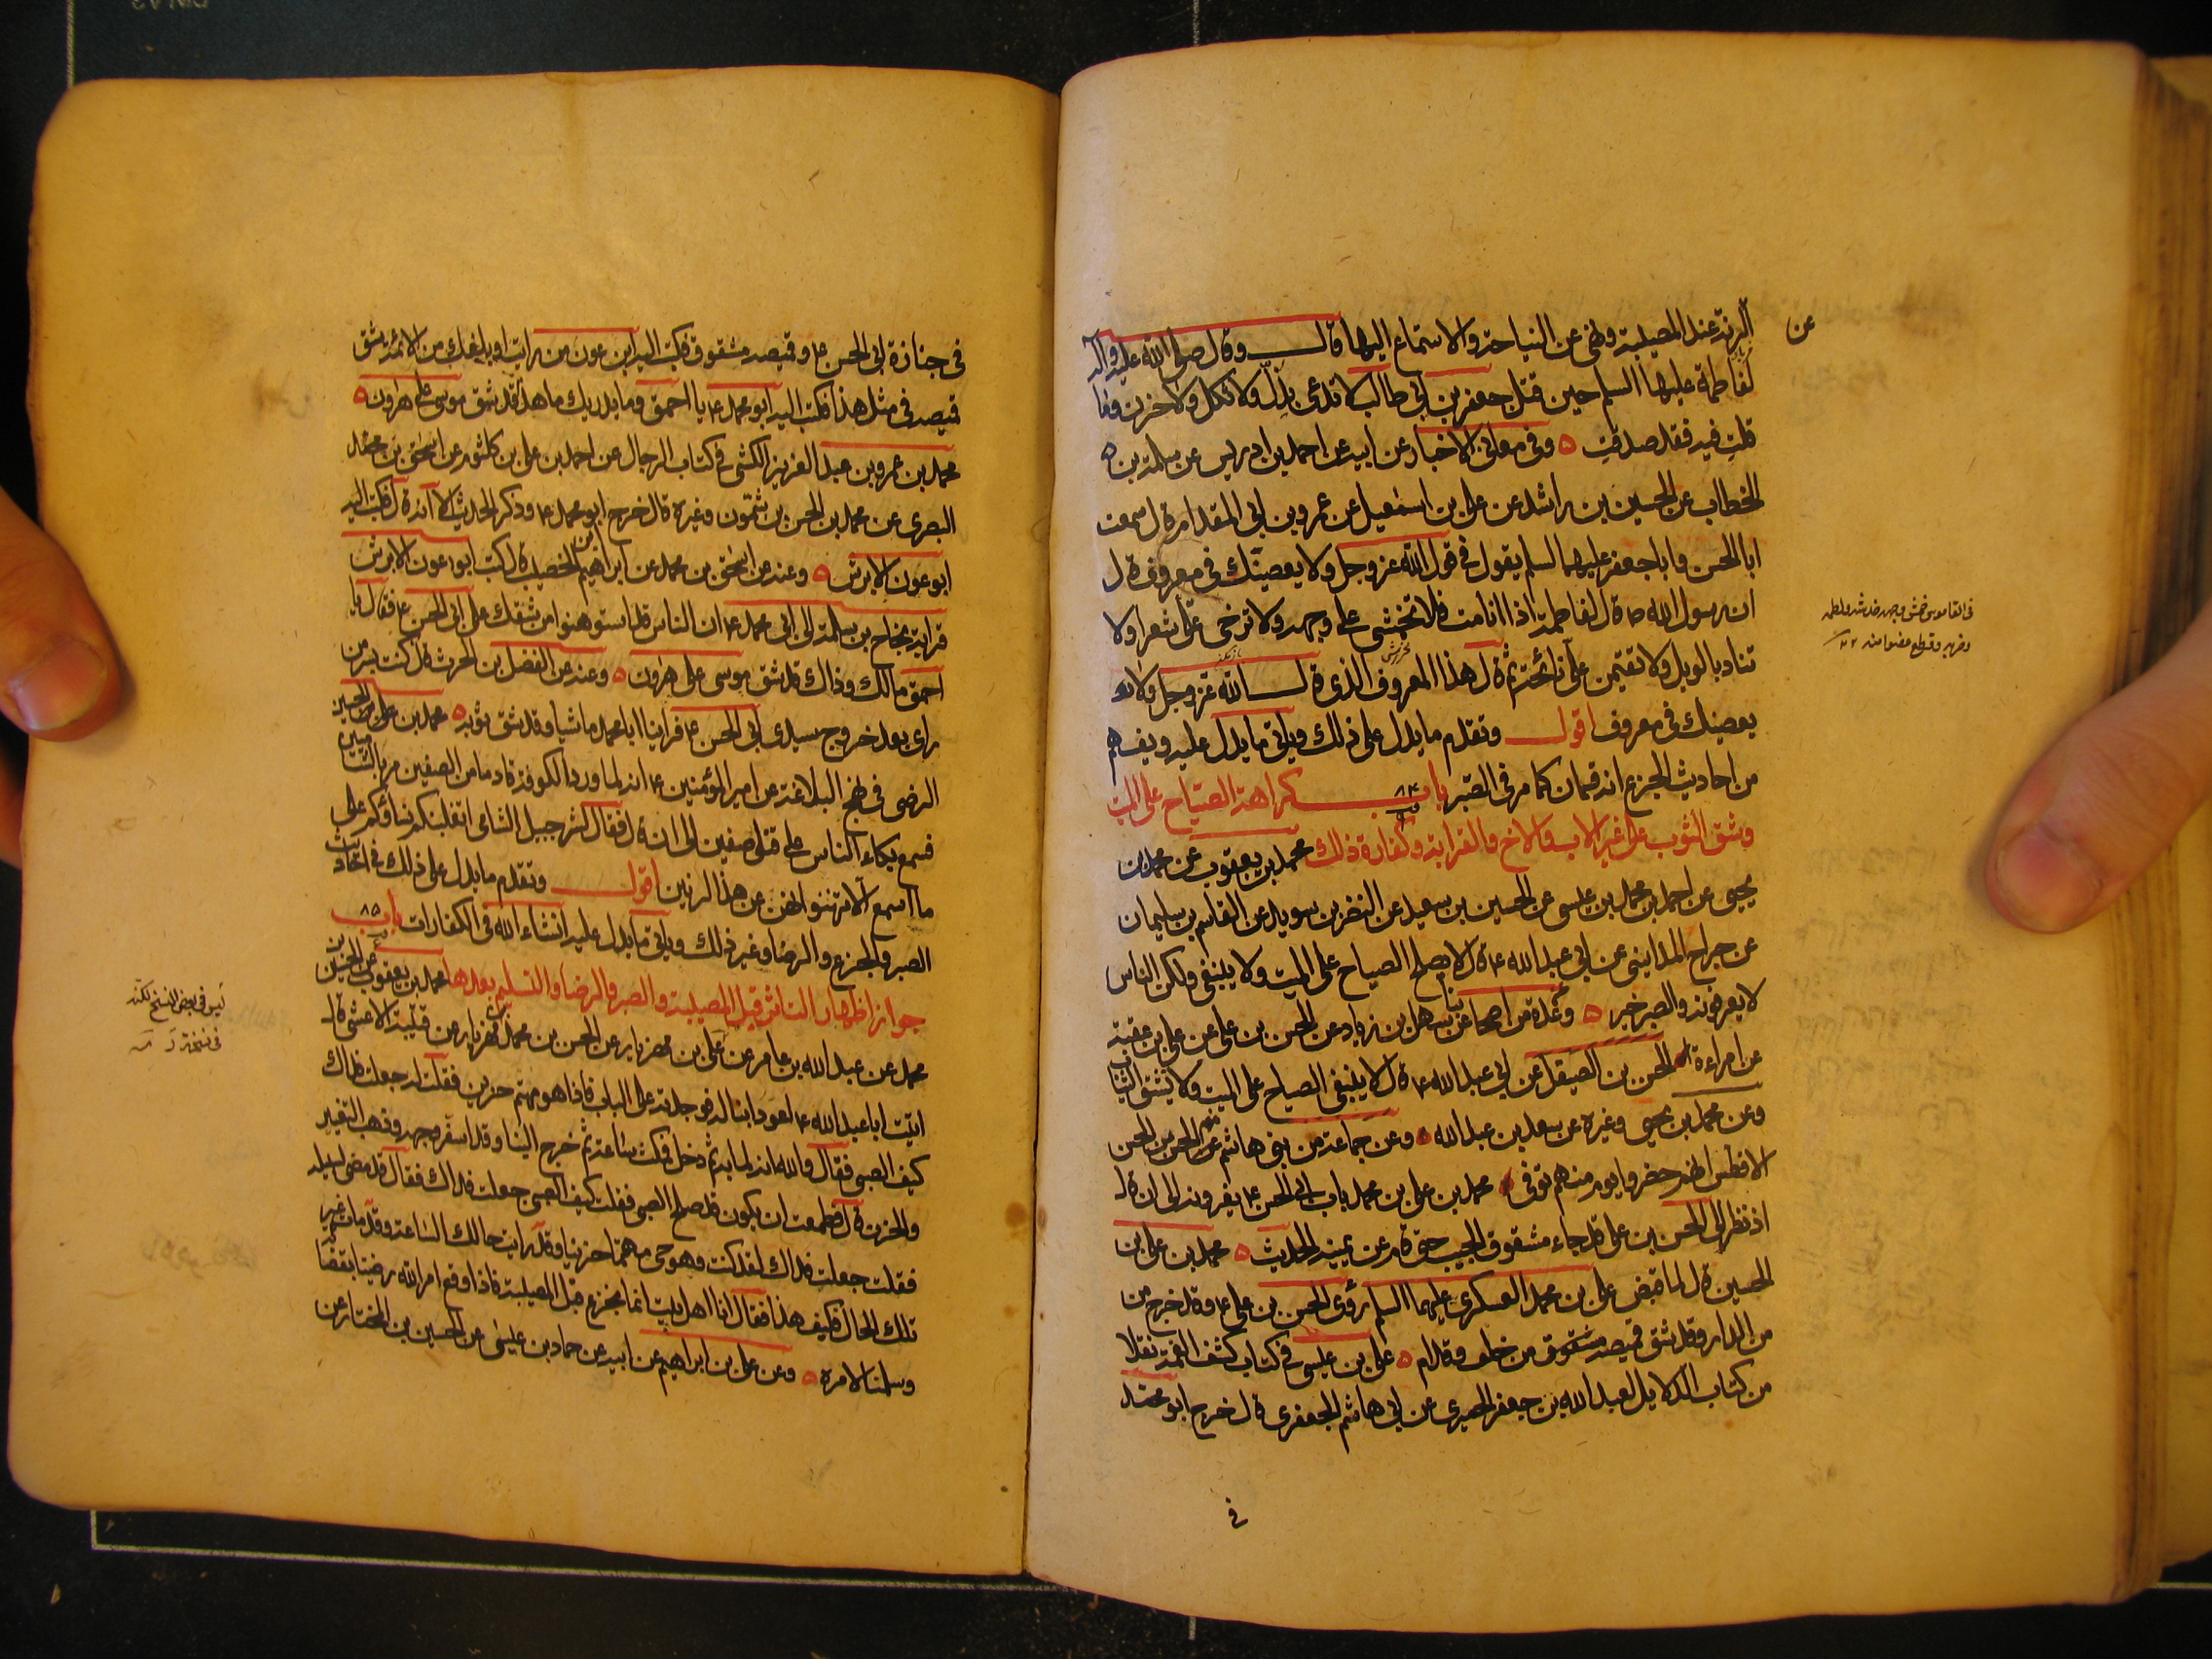 عن
الرنة عند المصيبة ونهى عن النياحة والاستماع اليها قال وقال صلى الله عليه وآله
لفاطمة عليها السلم حين قتل جعفر بن ابي طالب لا تدعى بذل ولا ثكل ولا حزن وما
قلت فيه فقد صدقت وفي معاني الاخبار عن ابيه عن احمد بن ادريس عن سلمة بن
الخطاب عن الحسين بن راشد عن علي بن اسمعيل عن عمرو بن ابي المقدام قال سمعت
ابا الحسن وابا جعفر عليهما السلم يقول في قول الله عز وجل ولا يعصينك في معروف قال
ان رسول الله ص قال لفاطمة اذا انا مت فلا تخمشي علي وجها ولا ترخي علي شعرا ولا
تنادي بالويل ولا تقيمن علي نائحة ثم قال هذا المعروف الذي قال الله عز وجل ولا
يعصينك في معروف اقول وتقدم ما يدل على ذلك وياتي ما يدل عليه ويفهم
من احاديث الجزع انه قسمان كما مر في الصبر باب ٨٤ كراهة الصياح على الميت
وشق الثوب على غير الاب والاخ والقرابة وكفارة ذلك محمد بن يعقوب عن محمد بن
يحيى عن احمد بن محمد بن عيسى عن الحسين بن سعيد عن النضر بن سويد عن القاسم بن سليمان
عن جراح المدايني عن ابي عبد الله ع قال لا يصلح الصياح على الميت ولا ينبغي ولكن الناس
لا يعرفونه والصبر خير وعن عدة من اصحابنا عن سهل بن زياد عن الحسن بن علي عن علي بن عقبة
عن امراءة الحسن بن الصيقل عن ابي عبد الله ع قال لا ينبغي الصياح على الميت ولا يشق الثياب
وعن محمد بن يحيى وغيره عن سعد بن عبد الله وعن جماعة من بني هاشم منهم الحسن بن الحسن
الافطس انهم حضروا يوم توفى محمد بن علي بن محمد باب ابي الحسن ع يعزونه الى ان قال
اذ نظر الى الحسن بن علي قد جاء مشقوق الجيب حتى قام عن يمينه الحديث محمد بن علي بن
الحسين قال لما قبض علي بن محمد العسكري عليهما السلم رؤي الحسن بن علي ع وقد خرج من
من الدار وقد شق قميصه مشقوق من خلف وقدام علي بن عيسى في كتاب كشف الغمة نقلا
من كتاب الدلايل لعبد الله بن جعفر الحميري عن ابي هاشم الجعفري قال خرج ابو محمد
في
في القاموس خمش وجهه خدشه ولطمه
وضربه وقطع عضوا منه
في جنازة ابي الحسن ع وقميصه مشقوق فكتب اليه ابن عون من رايت او بلغك من الائمة شق
قميصه في مثل هذا فكتب اليه ابو محمد ع يا احمق وما يدريك ما هذا قد شق موسى على هرون
محمد بن عمرو بن عبد العزيز الكشي في كتاب الرجال عن احمد بن علي بن كلثوم عن اسحق بن محمد
البصري عن محمد بن الحسن بن شمون وغيره قال خرج ابو محمد ع وذكر الحديث الا انه قال فكتب اليه
ابو عون الابرش وعنه عن اسحق بن محمد عن ابراهيم بن الخصيب قال كتب ابو عون الابرش
قرابة نجاح بن سلمة الى ابي محمد ع ان الناس قد استوهنوا من شقك على ابي الحسن ع فقال يا
احمق مالك وذاك قد شق موسى على هرون وعنه عن الفضل بن الحرث قال كنت بسر من
راى بعد خروج سيدي ابي الحسن ع فراينا ابا محمد ماشيا وقد شق ثوبه محمد بن علي بن الحسين
الرضي في نهج البلاغة عن امير المؤمنين ع انه لما ورد الكوفة قادما من الصفين مر بالشاميين
فسمع بكاء الناس على قتلى صفين الى ان قال فقال لشرحبيل الشامي اتغلبكم نساؤكم على
ما اسمع الا تنهونهن عن هذا الرنين اقول وتقدم ما يدل على ذلك في احاديث
الصبر والجزع والرضا وغير ذلك وياتي ما يدل عليه انشاء الله في الكفارات باب ٨٥
جواز اظهار التاثر قبل المصيبة والصبر والرضا والتسليم بعدها محمد بن يعقوب عن الحسين بن
محمد عن عبد الله بن عامر عن علي بن مهزيار عن الحسن بن محمد بن مهزيار عن قتيبة الاعشى قال
اتيت ابا عبد الله ع لعود ابنا له فوجدته على الباب فاذا هو مهتم حزين فقلت له جعلت فداك
كيف الصبي فقال والله انه لما به ثم دخل فمكث ساعة ثم خرج الينا وقد اسفر وجهه وذهب التغير
والحزن قال فطمعت ان يكون قد صلح الصبي فقلت كيف الصبي جعلت فداك فقال قد مضى لسبيله
فقلت جعلت فداك لقد كنت وهو حي مهتما حزينا وقد رايت حالك الساعة وقد مات غير
تلك الحال فكيف هذا فقال انا اهل بيت انما نجزع قبل المصيبة فاذا وقع امر الله رضينا بقضا
وسلمنا لامره وعن علي بن ابراهيم عن ابيه عن حماد بن عيسى عن الحسين بن المختار عن
ليس في بعض النسخ لكنه
في نسخة